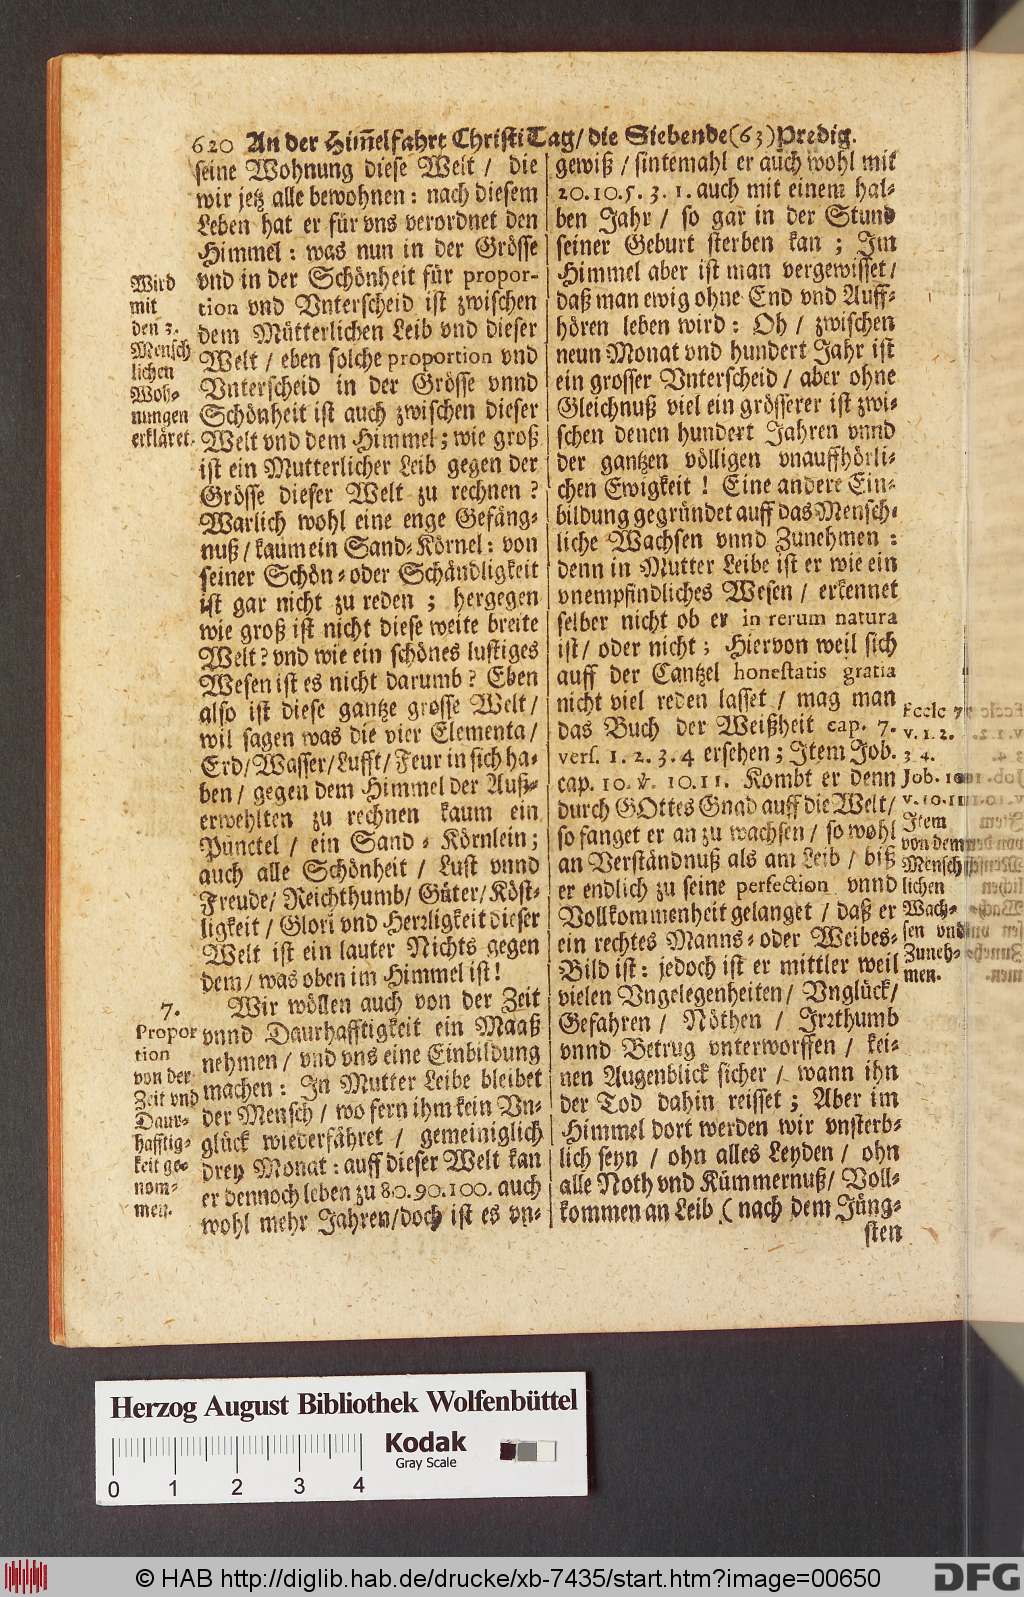 620 An der Him̃elfahrt Christi Tag/ die Siebende (63) Predig.
seine Wohnung diese Welt / die
wir jetz alle bewohnen : nach diesem
Leben hat er für vns verordnet den
Himmel : was nun in der Grösse
vnd in der Schönheit für propor-
tion vnd Vnterscheid ist zwischen
dem Mütterlichen Leib vnd dieser
Welt / eben solche proportion vnd
Vnterscheid in der Grösse vnnd
Schönheit ist auch zwischen dieser
Welt vnd dem Himmel ; wie groß
ist ein Mutterlicher Leib gegen der
Grösse dieser Welt zu rechnen ?
Warlich wohl eine enge Gefäng-
nuß / kaum ein Sand-Körnel : von
seiner Schön- oder Schändligkeit
ist gar nicht zu reden ; hergegen
wie groß ist nicht diese weite breite
Welt ? vnd wie ein schönes lustiges
Wesen ist es nicht darumb ? Eben
also ist diese gantze grosse Welt /
wil sagen was die vier Elementa /
Erd / Wasser / Lufft / Feur in sich ha-
ben / gegen dem Himmel der Auß-
erwehlten zu rechnen kaum ein
Punctel / ein Sand - Körnlein ;
auch alle Schönheit / Lust vnnd
Freude / Reichthumb / Güter / Köst-
ligkeit / Glori vnd Herzligkeit dieser
Welt ist ein lauter Nichts gegen
dem / was oben im Himmel ist !
Wir wöllen auch von der Zeit
vnnd Daurhafftigkeit ein Maaß
nehmen / vnd vns eine Einbildung
machen : In Mutter Leibe bleibet
der Mensch / wo fern ihm kein Vn-
glück wiederfähret / gemeiniglich
drey Monat : auff dieser Welt kan
er dennoch leben zu 80. 90. 100. auch
wohl mehr Jahren / doch ist es vn-
Wird
mit
den 3.
Mensch
lichen
Woh-
nungen
erkläret.
7.
Propor
tion
von der
Zeit vnd
Daur-
hafftig-
keit ge-
nom-
men.
gewiß / sintemahl er auch wohl mit
20. 10. 5. 3. 1. auch mit einem hal-
ben Jahr / so gar in der Stund
seiner Geburt sterben kan ; Im
Himmel aber ist man vergewisset /
daß man ewig ohne End vnd Auff-
hören leben wird : Oh / zwischen
neun Monat vnd hundert Jahr ist
ein grosser Vnterscheid / aber ohne
Gleichnuß viel ein grösserer ist zwi-
schen denen hundert Jahren vnnd
der gantzen völligen vnauffhörli-
chen Ewigkeit ! Eine andere Ein-
bildung gegründet auff das Mensch-
liche Wachsen vnnd Zunehmen :
denn in Mutter Leibe ist er wie ein
vnempfindliches Wesen / erkennet
selber nicht ob er in rerum natura
ist / oder nicht ; Hiervon weil sich
auff der Cantzel honestatis gratia
nicht viel reden lasset / mag man
das Buch der Weißheit cap. 7.
vers. 1. 2. 3. 4 ersehen ; Item Job.
cap. 10. v. 10. 11. Kombt er denn
durch GOttes Gnad auff die Welt /
so fanget er an zu wachsen / so wohl
an Verständnuß als am Leib / biß
er endlich zu seine perfection vnnd
Vollkommenheit gelanget / daß er
ein rechtes Manns- oder Weibes-
Bild ist : jedoch ist er mittler weil
vielen Vngelegenheiten / Vnglück /
Gefahren / Nöthen / Irrthumb
vnnd Betrug vnterworffen / kei-
nen Augenblick sicher / wann ihn
der Tod dahin reisset ; Aber im
Himmel dort werden wir vnsterb-
lich seyn / ohn alles Leyden / ohn
alle Noth vnd Kümmernuß / Voll-
kommen an Leib ( nach dem Jüng-
sten
Eccle 7
v. 1. 2.
3 4.
Job. 10
v. 10. 11
Item
von dem
Mensch
lichen
Wach-
sen vnd
Zuneh-
men.
Herzog August Bibliothek Wolfenbüttel
Kodak
Gray Scale
0 1 2 3 4
© HAB http://diglib.hab.de/drucke/xb-7435/start.htm?image=00650
DFG